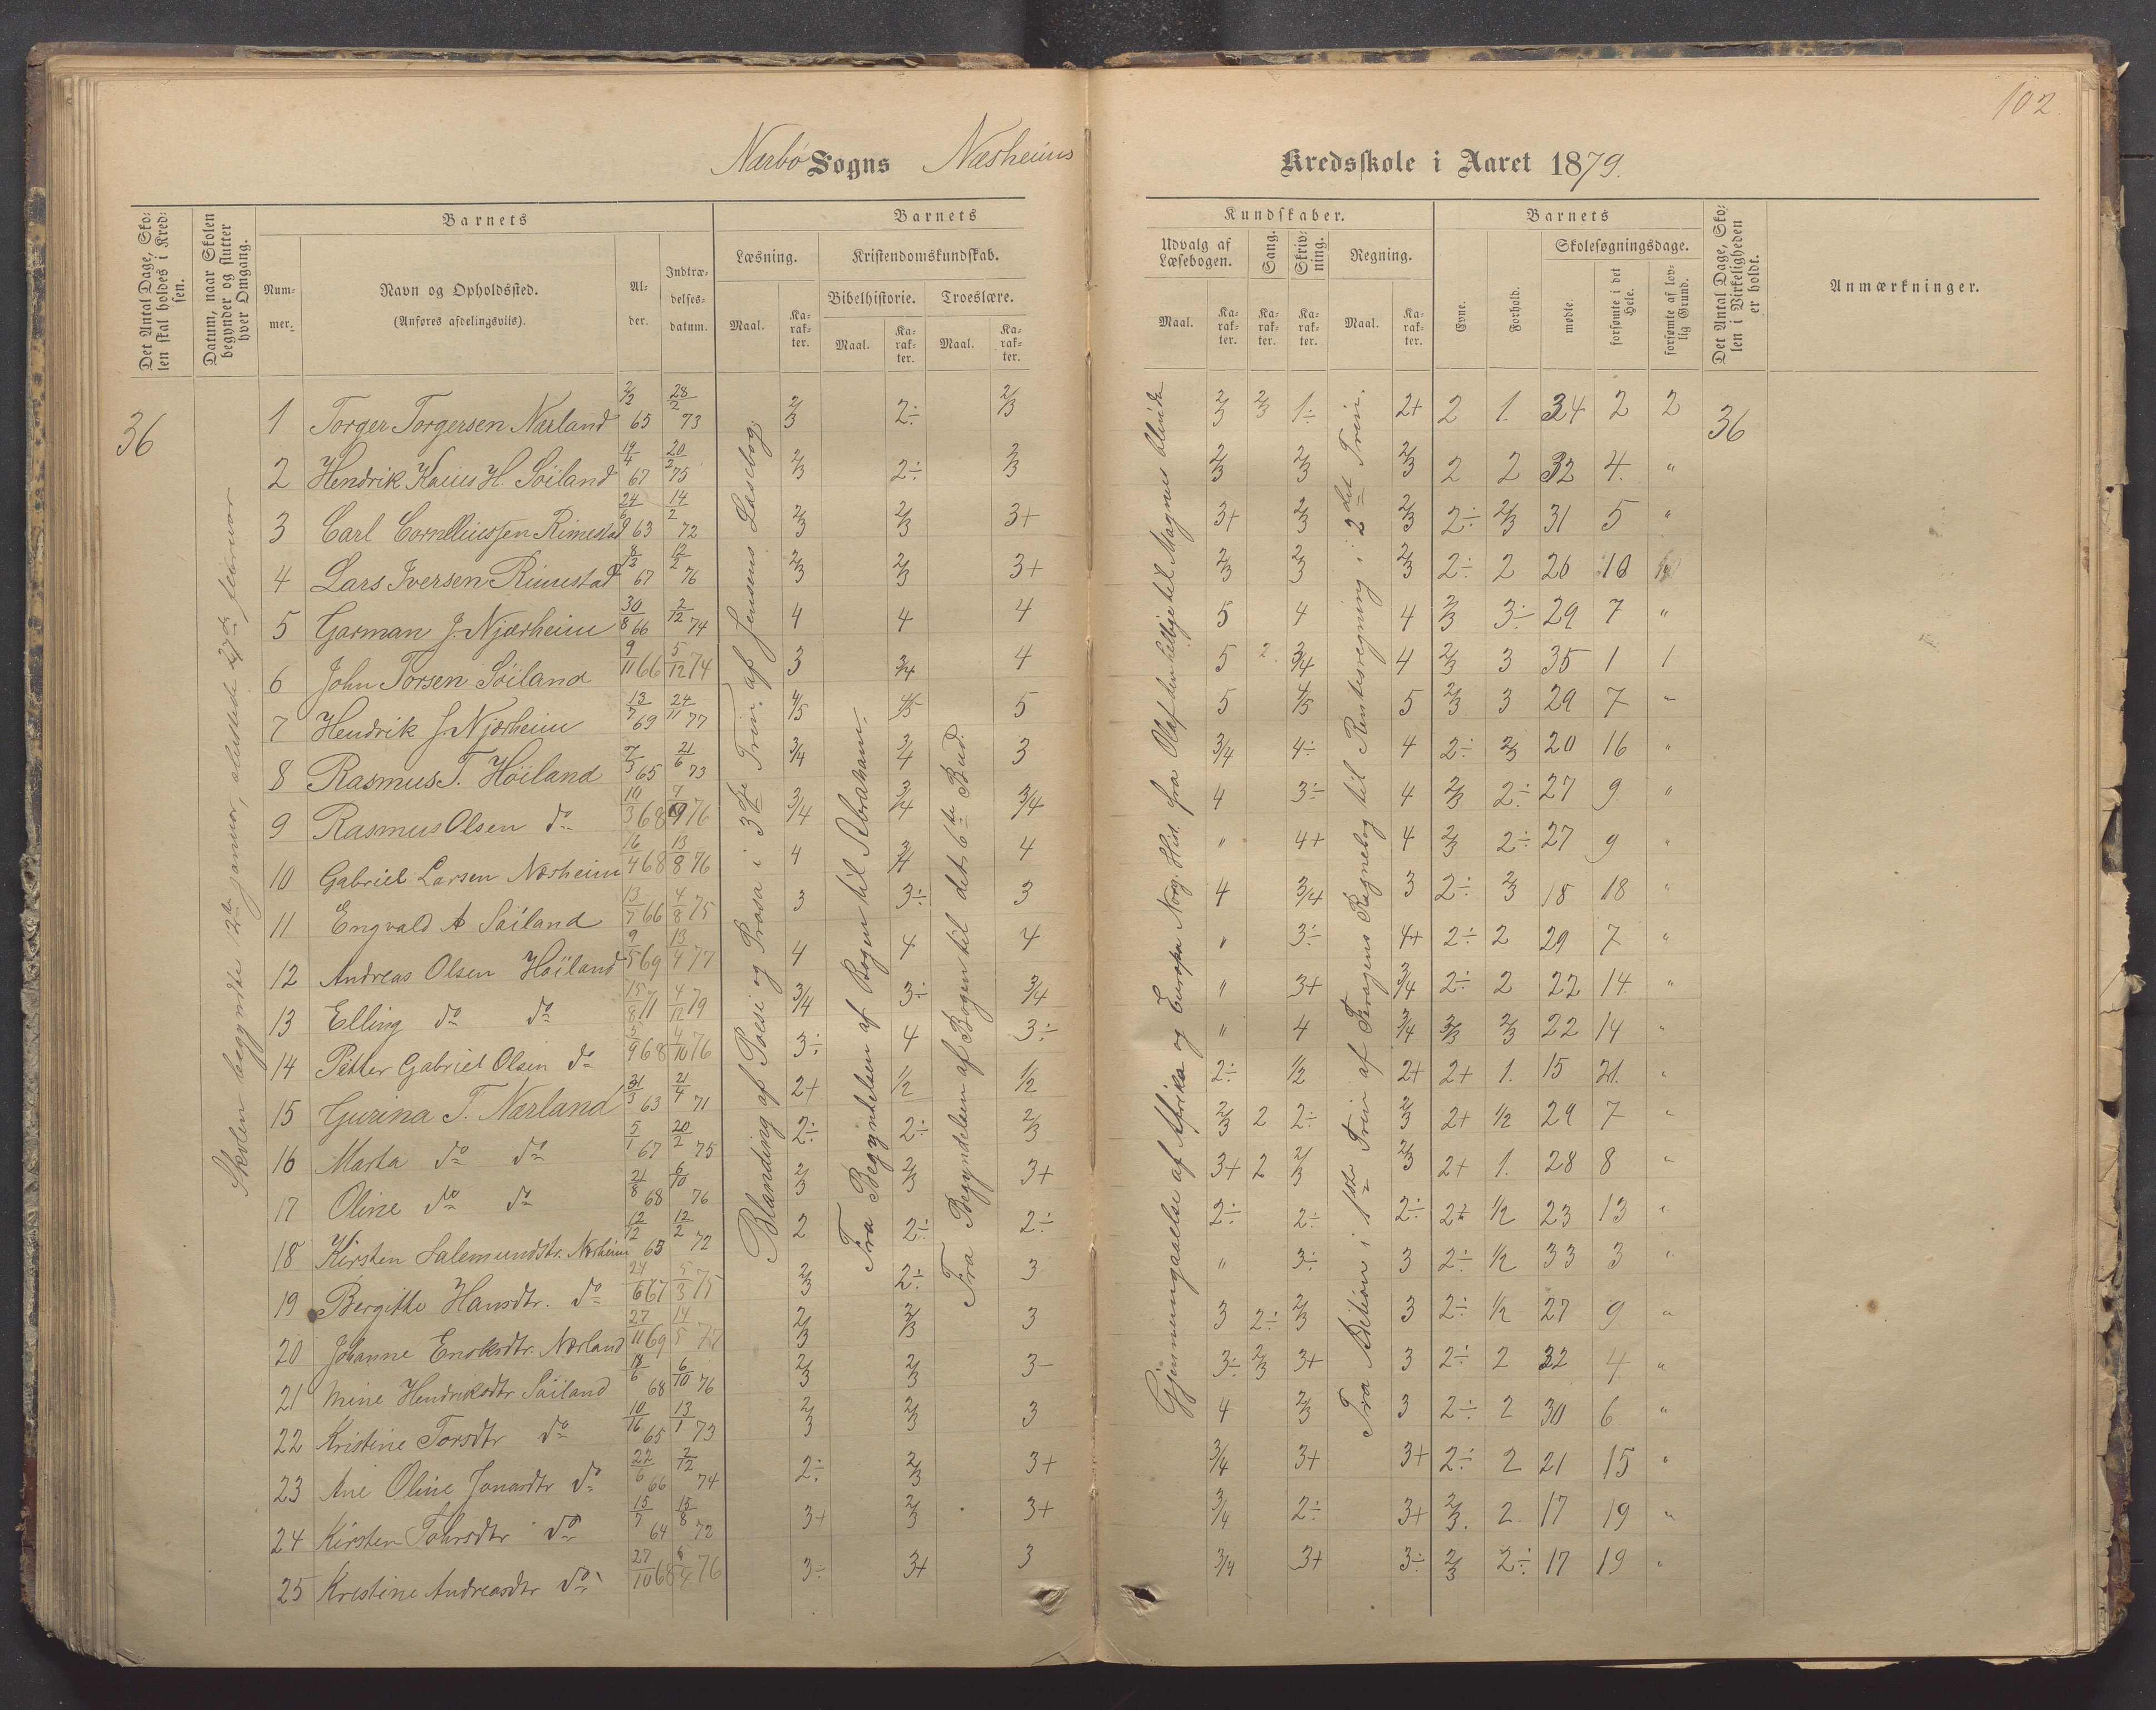 102
Nærbø Sogns Næsheims Kredsskole i Aaret 1879.
Det Antal Dage, Skolen skal holdes i Kredsen.
Datum, naar Skolen begynder og slutter hver Omgang.
Barnets
Nummer.
Navn og Opholdssted.
(Anføres afdelingsvis).
Alder.
Indtrædelsesdatum.
Barnets
Læsning.
Maal.
Karakter.
Kristendomskundskab.
Bibelhistorie.
Maal.
Karakter.
Troeslære.
Maal.
Karakter.
Kundskaber.
Udvalg af Læsebogen.
Maal.
Karakter.
Sang.
Karakter.
Skrivning.
Karakter.
Regning.
Maal.
Karakter.
Barnets
Evne.
Forhold.
Skolesøgningsdage.
mødte.
forsømte i det Hele.
forsømte af lovlig Grund.
Det Antal Dage, Skolen i Virkeligheden er holdt.
Anmærkninger.
36
Skolen begyndte 12te januar, sluttede februar
Blanding af Poesi og Prosa i 3die Trin. af Jensens Læsebog.
Fra Begyndelsen af Bogen til Abraham.
Fra Begyndelsen af Bogen til det 6te Bud.
Gjennemgaaelse af Afrika og Europa Norg. Hist. fra Olaf den hellige til Magnus blinde
Fra Adition i 1ste Trin af Fragens Regnebog til Rentesregning i 2det Trin.
36
1 Torger Torgersen Nærland 65 28/2 73 2/3 2÷ 2/3 2/3 2/3 1÷ 2+ 2 1. 34 2 2
2 Hendrik Kaius H. Söiland 19/4 67 20/2 75 2/3 2÷ 2/3 2/3 2/3 2/3 2 2 32 4. "
3 Carl Corneliussen Rimestad 24/6 63 14/2 72 2/3 2/3 3+ 3+ 2/3 2/3 2÷ 2/3 31 5 "
4 Lars Iversen Rimestad 8/12 67 12/2 76 2/3 2/3 3+ 2/3 2/3 2/3 2÷ 2 26 10
5 Garman J. Njærheim 30/8 66 2/12 74 4 4 4 5 4 4 2/3 3÷ 29 7 "
6 John Torsen Söiland 9/11 66 5/12 74 3 3/4 4 5 2 3/4 4 2/3 3 35 1 1
7 Hendrik J. Njærheim 13/7 69 24/11 77 4/5 4/5 5 5 4/5 5 2/3 3 29 7 "
8 Rasmus T. Höiland 7/3 65 21/6 73 3/4 3/4 3 3/4 4÷ 4 2÷ 2/3 20 16 "
9 Rasmus Olsen do 19/3 68 76 3/4 3/4 3/4 4 3÷ 4 2/3 2÷ 27 9 "
10 Gabriel Larsen Næsheim 16/4 68 13/8 76 4 3/4 4 " 4+ 4 2/3 2÷ 27 9 "
11 Engvald A Söiland 13/7 66 4/8 75 3 3÷ 3 4 3/4 3 2÷ 2/3 18 18 "
12 Andreas Olsen Höiland 9/5 69 13/4 77 4 4 4 " 3÷ 4+ 2÷ 2 29 7 "
13 Elling do do 15/8 71 4/12 79 3/4 3÷ 3/4 " 3+ 3/4 2÷ 2 22 14 "
14 Petter Gabriel Olsen do 5/9 68 4/10 76 3÷ 4 3÷ " 4 3/4 2/3 2/3 22 14 "
15 Gurina T. Nærland 31/3 63 21/4 71 2+ 1/2 1/2 2÷ 1/2 2+ 2+ 1. 15 21. "
16 Marta do do 5/1 67 20/2 75 2÷ 2÷ 2/3 2/3 2 2÷ 2/3 2+ 1/2 29 7 "
17 Oline do do 21/8 68 6/10 76 2/3 2/3 3+ 3+ 2 2/3 2/3 2+ 1. 28 8 "
18 Kirsten Salemundsdtr. Næsheim 12/12 65 12/2 72 2 2÷ 2÷ 2÷ 2÷ 2÷ 2÷ 1/2 23 13 "
19 Bergitte Hansdtr. do 24/6 67 5/3 75 2/3 2÷ 3 " 3÷ 3 2÷ 1/2 33 3 "
20 Johanne Enoksdtr. Nærland 27/11 69 14/5 77 2/3 2/3 3 3 2÷ 2/3 3 2÷ 1/2 27 9 "
21 Mine Hendriksdtr Söiland 18/6 68 6/10 76 2/3 2/3 3- 3÷ 2/3 3+ 3 2÷ 2 32 4 "
22 Kristine Torsdtr do 65 13/1 73 2/3 2/3 3 4 2/3 3 2÷ 2 30 6 "
23 Ane Oline Jonasdtr do 22/6 66 2/12 74 2÷ 2/3 3+ 3/4 3+ 3+ 2÷ 2 21 15 "
24 Kirsten Tohrsdtr do 15/7 64 15/8 72 3+ 2/3 3+ 3/4 2÷ 3+ 2/3. 2. 17 19 "
25 Kristine Andreasdtr do 27/10 68 6/4 76 3÷ 3+ 3 3/4 3+ 3÷ 2/3 2÷ 17 19 "